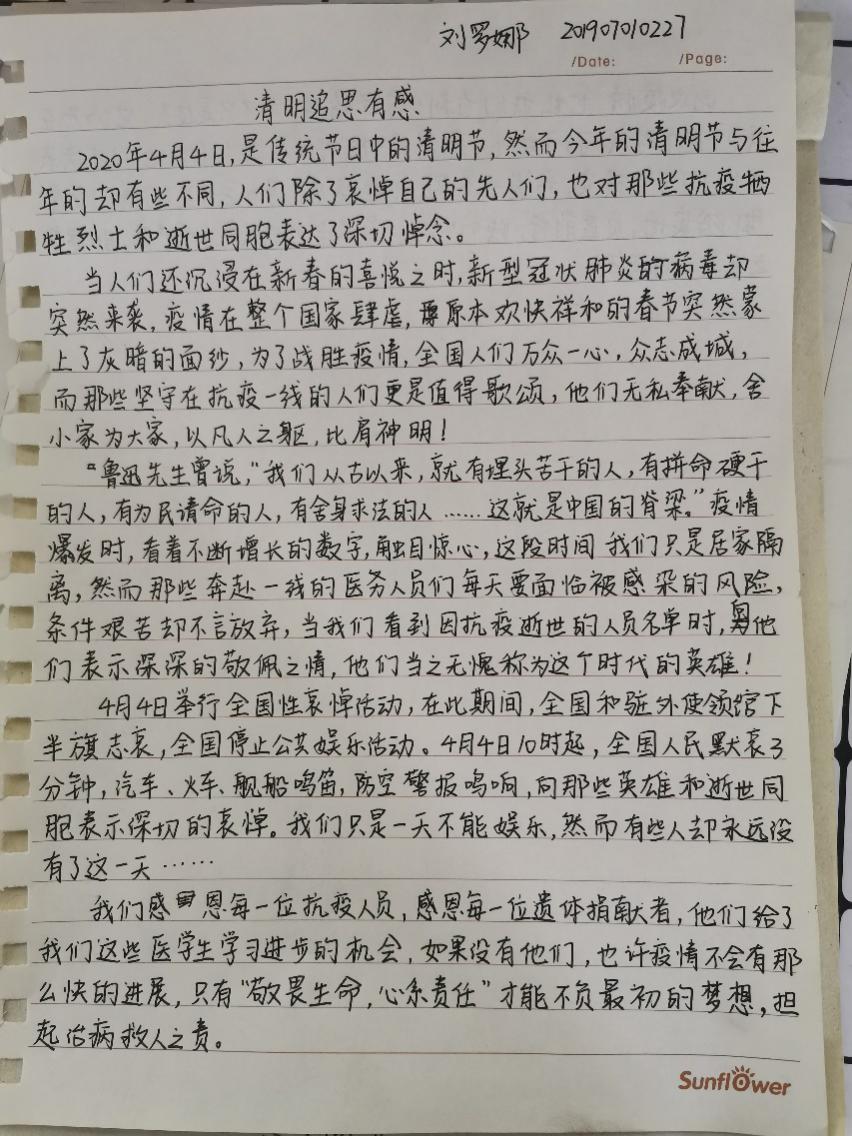 刘罗娜 201907010227
/Date: /Page:
清明追思有感
2020年4月4日,是传统节日中的清明节,然而今年的清明节与往
年的却有些不同,人们除了哀悼自己的先人们,也对那些抗疫牺
牲烈士和逝世同胞表达了深切悼念。
当人们还沉浸在新春的喜悦之时,新型冠状肺炎的病毒却
突然来袭,疫情在整个国家肆虐,原本欢快祥和的春节突然蒙
上了灰暗的面纱,为了战胜疫情,全国人们万众一心,众志成城,
而那些坚守在抗疫一线的人们更是值得歌颂,他们无私奉献,舍
小家为大家,以凡人之躯,比肩神明!
“鲁迅先生曾说,“我们从古以来,就有埋头苦干的人,有拼命硬干
的人,有为民请命的人,有舍身求法的人……这就是中国的脊梁。”疫情
爆发时,看着不断增长的数字,触目惊心,这段时间我们只是居家隔
离,然而那些奔赴一线的医务人员们每天要面临被感染的风险,
条件艰苦却不言放弃,当我们看到因抗疫逝世的人员名单时,他
们表示深深的敬佩之情,他们当之无愧称为这个时代的英雄!
4月4日举行全国性哀悼活动,在此期间,全国和驻外使领馆下
半旗志哀,全国停止公共娱乐活动。4月4日10时起,全国人民默哀3
分钟,汽车、火车、舰船鸣笛,防空警报鸣响,向那些英雄和逝世同
胞表示深切的哀悼。我们只是一天不能娱乐,然而有些人却永远没
有了这一天……
我们感恩每一位抗疫人员,感恩每一位遗体捐献者,他们给了
我们这些医学生学习进步的机会,如果没有他们,也许疫情不会有那
么快的进展,只有“敬畏生命,心系责任”才能不负最初的梦想,担
起治病救人之责。
Sunflower